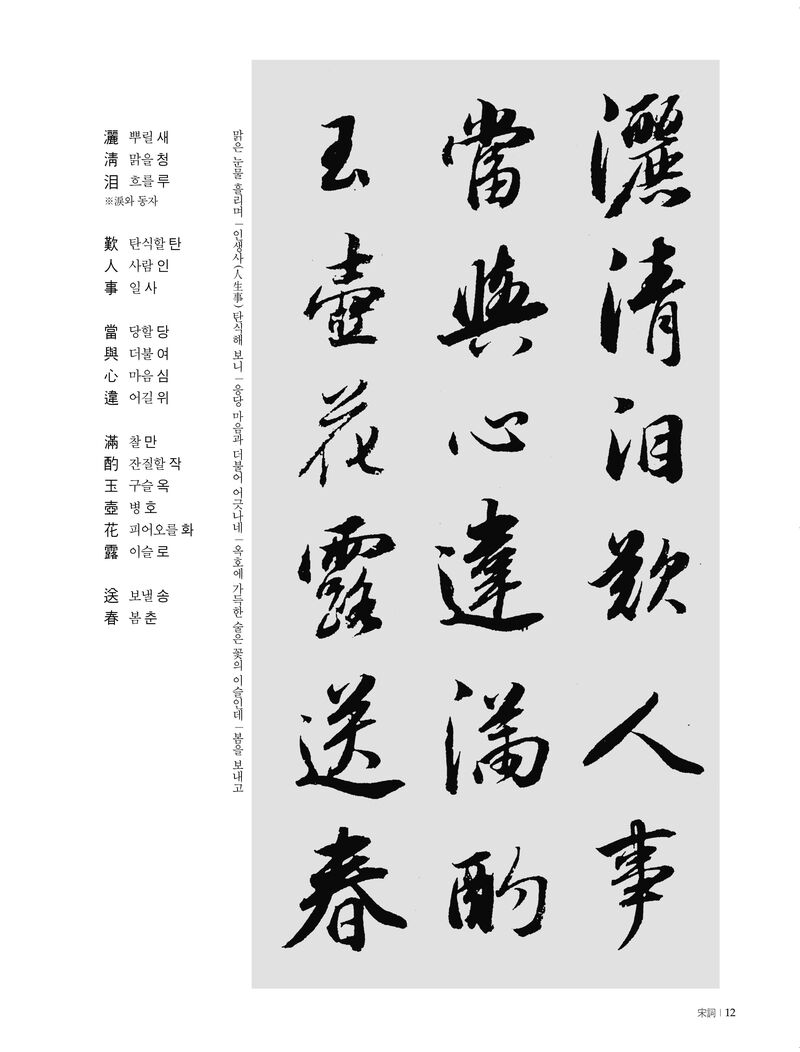 灑 뿌릴 새
淸 맑을 청
泪 흐를 루
※淚와 동자
歎 탄식할 탄
人 사람 인
事 일 사
當 당할 당
與 더불 여
心 마음 심
違 어길 위
滿 찰 만
酌 잔질할 작
玉 구슬 옥
壺 병 호
花 피어오를 화
露 이슬 로
送 보낼 송
春 봄 춘
맑은 눈물 흘리며 | 인생사(人生事) 탄식해 보니 | 응당 마음과 더불어 어긋나네 | 옥호에 가득한 술은 꽃의 이슬인데 | 봄을 보내고
灑清泪歎人事
當與心違滿酌
玉壺花露送春
宋詞 | 12